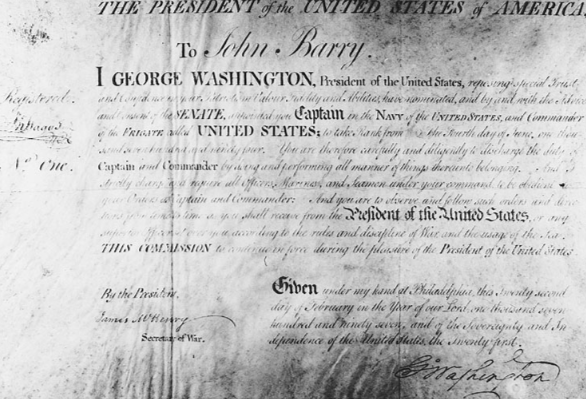 THE PRESIDENT of the UNITED STATES of AMERICA
To John Barry.
I GEORGE WASHINGTON, President of the United States, reposing special Trust
and Confidence in your Patriotism Valour Fidelity and Abilities, have nominated, and by and with the Advice
Registered.
and Consent of the SENATE, appointed you Captain in the NAVY of the UNITED STATES, and Commander
of the FRIGATE called UNITED STATES; to take Rank from the Fourth day of June, one thou
sand seven hundred and ninety four. You are therefore carefully and diligently to discharge the duty of
No. One.
Captain and Commander by doing and performing all manner of things thereunto belonging. And I
strictly charge and require all Officers, Marines, and Seamen under your command, to be obedient
your Orders as Captain and Commander: And you are to observe and follow such orders and direc
tions from time to time as you shall receive from the President of the United States, or any
superior Officer over you according to the rules and discipline of War and the usage of the Sea.
THIS COMMISSION to continue in force during the pleasure of the President of the United States
Given under my hand at Philadelphia, this Twenty second
By the President,
day of February in the Year of our Lord, one thousand seven
James McHenry
hundred and ninety seven, and of the Sovereignty and In
Secretary of War.
dependence of the United States, the Twenty first.
G. Washington